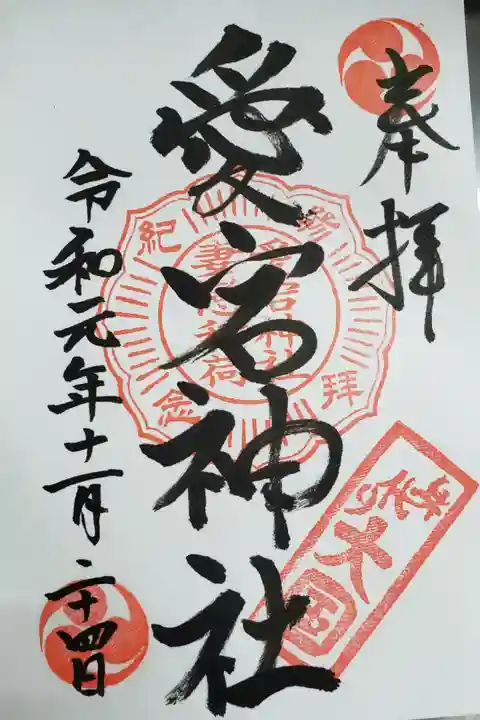 奉拝
愛宕神社
令和元年十一月二十四日
拝
紀念